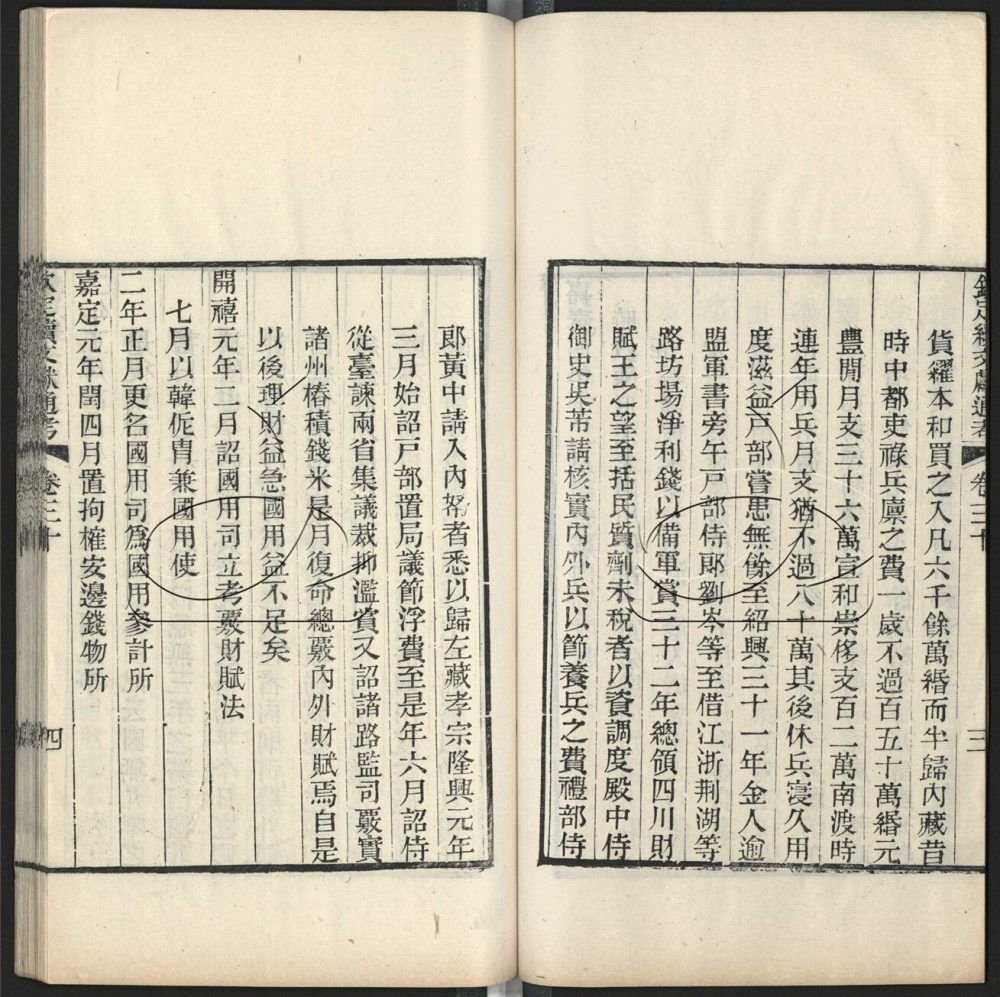 欽定續文獻通考 卷三十 三
貨糴本和買之入凡六千餘萬緡而半歸內藏昔
時中都吏祿兵廩之費一歲不過百五十萬緡元
豐閒月支三十六萬宣和崇侈支百二萬南渡時
連年用兵月支猶不過八十萬其後休兵寖久用
度滋益戸部嘗患無餘至紹興三十一年金人逾
盟軍書旁午戸部侍郞劉岑等至借江浙荆湖等
路坊場淨利錢以備軍賞三十二年總領四川財
賦王之望至括民質劑未稅者以資調度殿中侍
御史吳芾請核實內外兵以節養兵之費禮部侍
郞黃中請入內帑者悉以歸左藏孝宗隆興元年
三月始詔戸部置局議節浮費至是年六月詔侍
從臺諫兩省集議裁抑濫賞又詔諸路監司覈實
諸州樁積錢米是月復命總覈內外財賦焉自是
以後理財益急國用益不足矣
開禧元年正月詔國用司立考覈財賦法
七月以韓侂胄兼國用使
二年正月更名國用司爲國用參計所
嘉定元年閏四月置拘榷安邊錢物所
欽定續文獻通考 卷三十 四